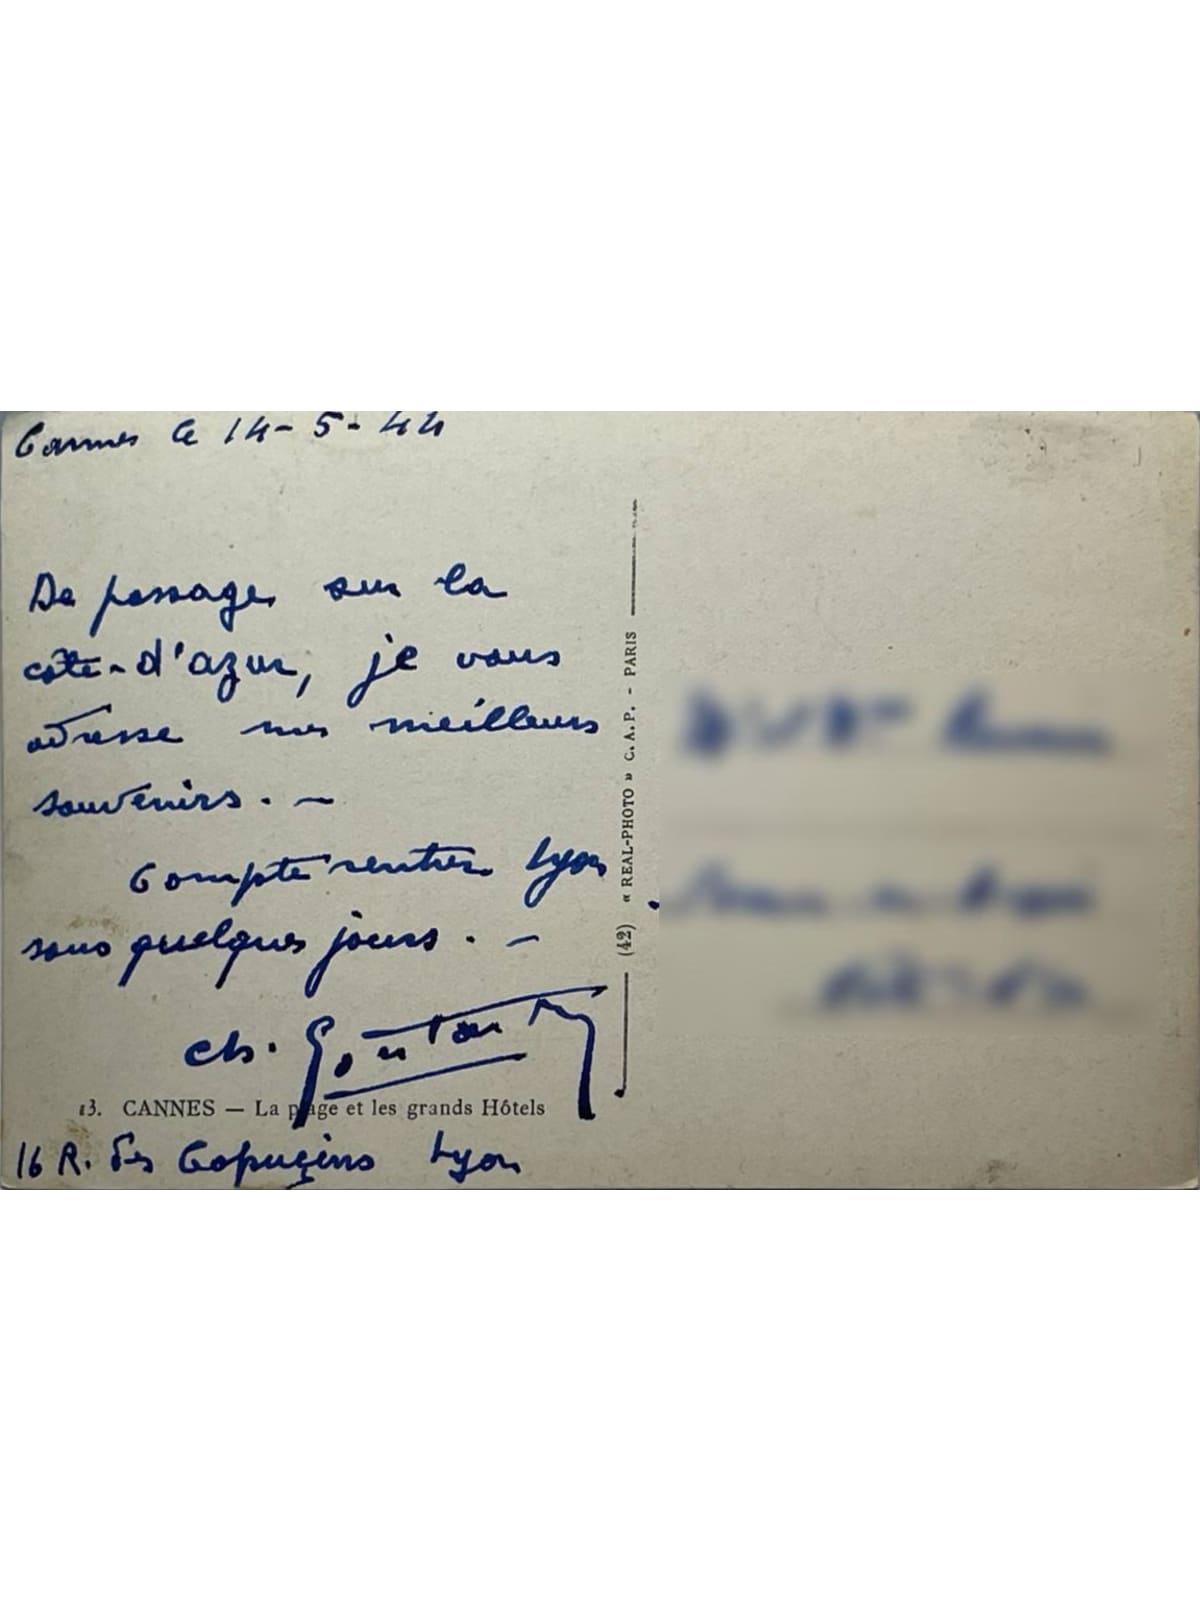 Cannes le 14-5-44
De passage sur la
côte-d'azur, je vous
adresse mes meilleurs
souvenirs. -
Compte rentrer Lyon
sous quelques jours. -
Ch.
13. CANNES — La plage et les grands Hôtels
16 R. des Capucins Lyon
(42) « REAL-PHOTO » C. A. P. - PARIS